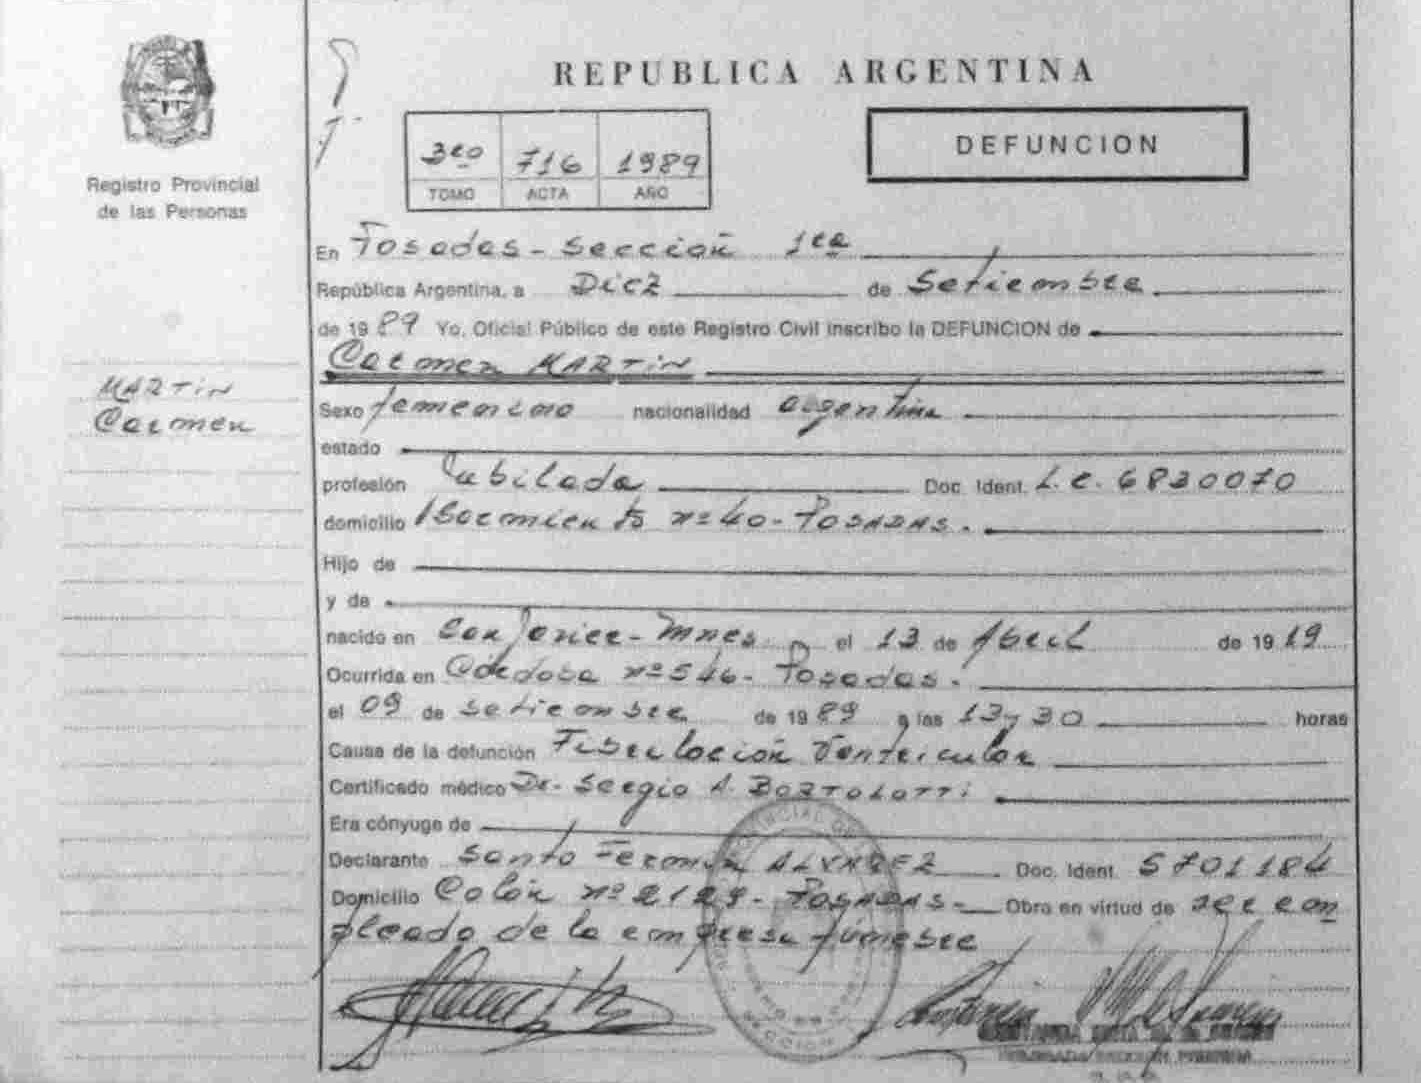 REPUBLICA ARGENTINA
DEFUNCION
3ro 716 1989
TOMO ACTA AÑO
Registro Provincial
de las Personas
En Posadas - Sección 1ra
República Argentina, a Diez de Setiembre
de 1989 Yo, Oficial Público de este Registro Civil inscribo la DEFUNCION de
Carmen MARTIN
MARTIN
Carmen
Sexo femenino nacionalidad argentina
estado
profesión Jubilada Doc. Ident. L.C. 6830070
domicilio Sarmiento nº 40 - POSADAS.
Hijo de
y de
nacido en San Javier - Mnes. el 13 de Abril de 1919
Ocurrida en Córdoba nº 546 - Posadas.
el 09 de setiembre de 1989 a las 13y30 horas
Causa de la defunción Fibrilación Ventricular
Certificado médico Dr. Sergio A. BORTOLOTTI
Era cónyuge de
Declarante Santo Fermín ALVAREZ Doc. Ident. 5701184
Domicilio Colón nº 2129 - POSADAS - Obra en virtud de ser em
pleado de la empresa fúnebre